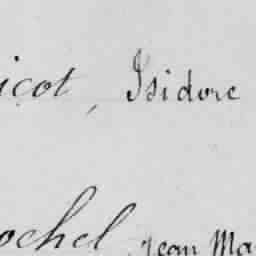 icot, Isidore
ochel, Jean Ma